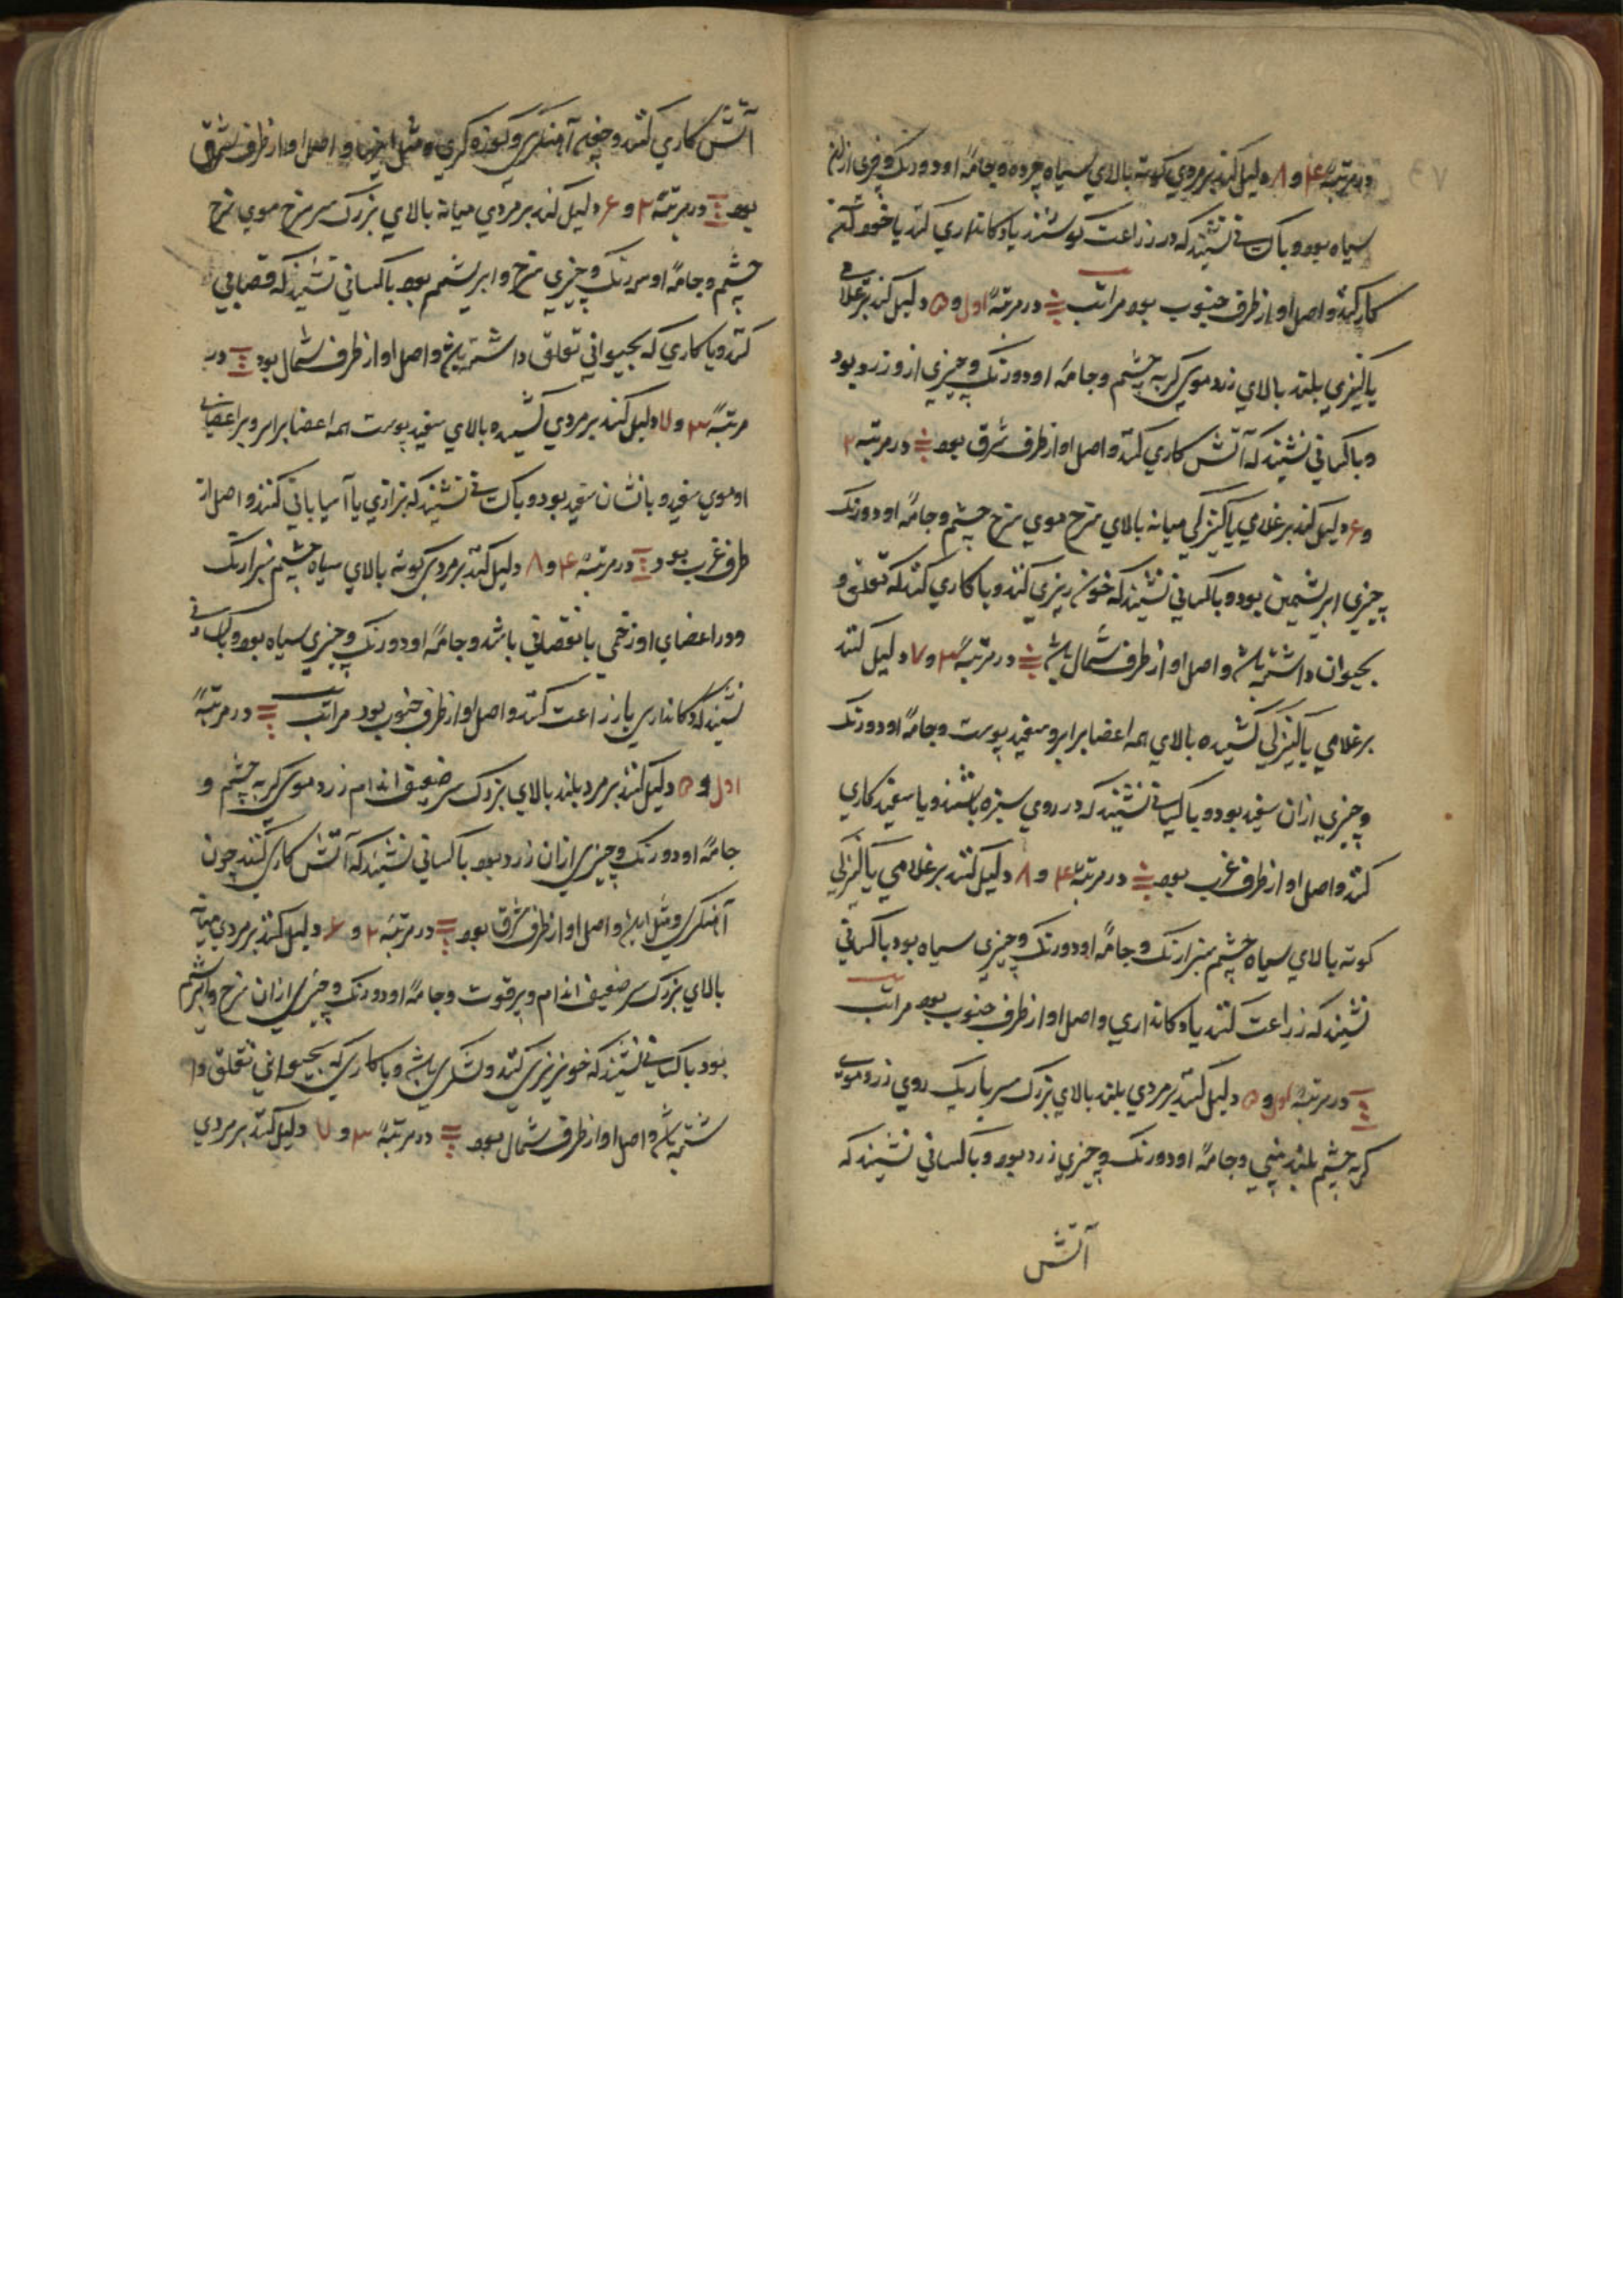 در مرتبهٔ ۴ و ۸ دلیل کند بر مردی کوته بالای سیاه چرده و جامهٔ او دو رنک و چیزی ازان
سیاه بود و با کسانی نشیند که در زراعت کوشند یا دکانداری کند یا خود
کار کند و اصل او از طرف جنوب بود مراتب در مرتبهٔ اول و ۵ دلیل کند بر غلامی
یا کنیزی بلند بالای زرد موی کربه چشم و جامهٔ او دو رنک و چیزی ازو زرد بود
و با کسانی نشیند که آتش کاری کند و اصل او از طرف شرق بود در مرتبه ۲
و ۶ دلیل کند بر غلامی یا کنیزکی میانه بالای سرخ موی سرخ چشم و جامهٔ او دو رنک
چیزی ابریشمین بود و با کسانی نشیند که خون ریزی کند و یا کاری کند که تعلق
بحیوان داشته باشد و اصل او از طرف شمال باشد در مرتبهٔ ۳ و ۷ دلیل کند
بر غلامی یا کنیزکی کشیده بالای همه اعضا برابر و سفید پوست و جامهٔ او دو رنک
و چیزی ازان سفید بود و با کسانی نشیند که در روی سبزه باشند و یا سفید کاری
کند و اصل او از طرف غرب بود در مرتبهٔ ۴ و ۸ دلیل کند بر غلامی یا کنیزکی
کوته بالای سیاه چشم سبزارنک و جامهٔ او دو رنک و چیزی سیاه بود با کسانی
نشیند که زراعت کند یا دکانداری و اصل او از طرف جنوب بود مراتب
در مرتبهٔ اول و ۵ دلیل کند بر مردی بلند بالای بزرک سر باریک روی زرد موی
کربه چشم بلند بینی و جامهٔ او دو رنک و چیزی زرد بود و با کسانی نشیند که
آتش
آتش کاری کند و آهنکری و کوزه کری و مثل این و اصل او از طرف شرق
بود در مرتبهٔ ۲ و ۶ دلیل کند بر مردی میانه بالای بزرک سر سرخ موی سرخ
چشم و جامهٔ او دو رنک و چیزی سرخ و ابریشم بود با کسانی نشیند که قصابی
کند و یا کاری که بحیوانی تعلق داشته باشد و اصل او از طرف شمال بود در
مرتبهٔ ۳ و ۷ دلیل کند بر مردی کشیده بالای سفید پوست همه اعضا برابر و بر اعضای
او موی سفید و با نشان سفید بود و با کسانی نشیند که بزازی یا آسیابانی کنند و اصل از
طرف غرب بود در مرتبهٔ ۴ و ۸ دلیل کند بر مردی کوته بالای سیاه چشم سبزارنک
و در اعضای او زخمی یا نقصانی باشد و جامهٔ او دو رنک و چیزی سیاه بود و با کسانی
نشیند که دکانداری یا زراعت کند و اصل او از طرف جنوب بود مراتب در مرتبهٔ
اول و ۵ دلیل کند بر مرد بلند بالای بزرک سر ضعیف اندام زرد موی کربه چشم و
جامهٔ او دو رنک و چیزی ازان زرد بود با کسانی نشیند که آتش کاری کنند چون
آهنکری و مثل این و اصل او از طرف شرق بود در مرتبهٔ ۲ و ۶ دلیل کند بر مردی میانه
بالای بزرک سر ضعیف اندام و پر قوت و جامهٔ او دو رنک و چیزی ازان سرخ و ابریشم
بود با کسانی نشیند که خونریزی کند و لشکری باشد و یا کاری که بحیوانی تعلق دا
شته باشد و اصل او از طرف شمال بود در مرتبهٔ ۳ و ۷ دلیل کند بر مردی